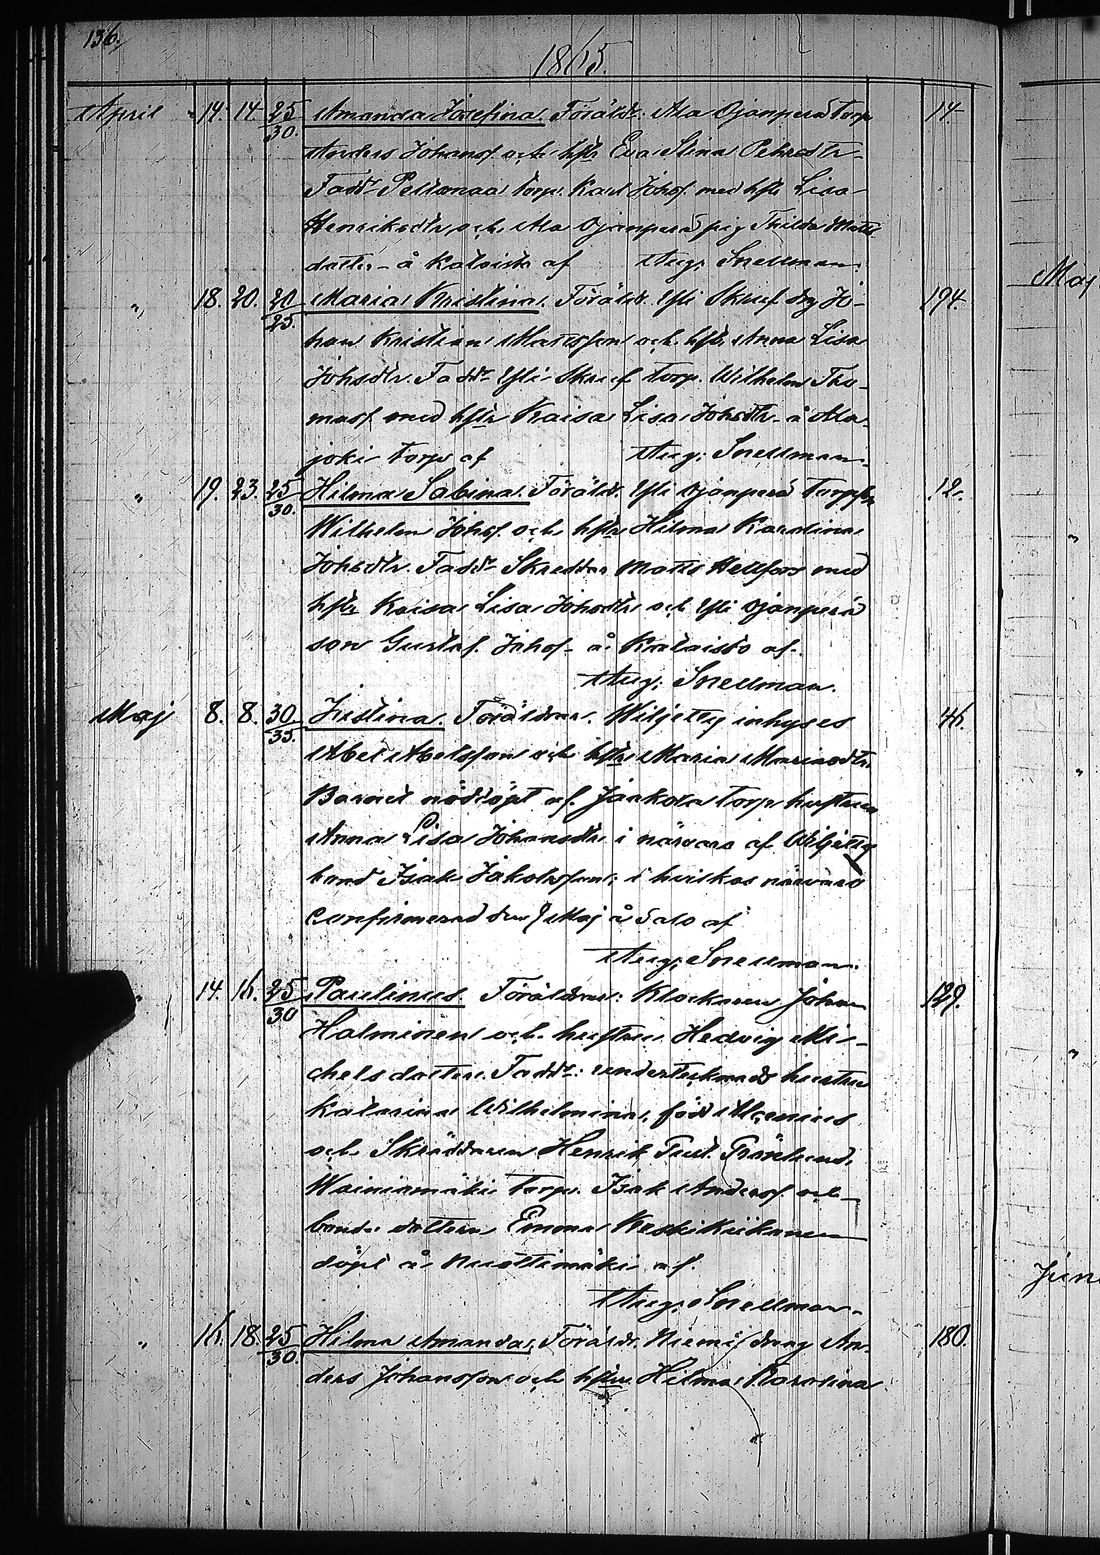 136.
1865.
April 14. 14. 25/30. Amanda Josefina. Föräldr. Ala Ojanperä Torp. 14.
Anders Johansf. och hstr Eva Stina Petersdtr.
Fadd. torp. Karl Johsf. med hstr Lisa
Henriksdtr, och Ala Ojanperä pig. Thilda Matts
dotter - å Kalaisto af Aug. Snellman.
" 18. 20. 20/25. Maria Kristina. Föräldr. Yli Skref drg Jo- 194.
han Kristian Mattsson och hstr. Anna Lisa
Johsdtr. Fadd. Yli Skref torp. Wilhelm Tho-
masf. med hstr Kaisa Lisa Johsdtr. å Ala-
joki torp af Aug. Snellman.
" 19. 23. 25/30. Hilma Sabina. Föräldr. Yli Ojanperä Torp. 12.
Wilhelm Johsf. och hstr Hilma Karolina
Johsdtr. Fadd. Skreddar Matts Hellfors med
hstr Kaisa Lisa Johsdtr och Yli Ojanperä
son Gustaf Johsf. å Kalaisto af.
Aug. Snellman.
Maj 8. 8. 30/35. Justina. Föräldrar. inhyses 46.
Abel Abelsson och hstr Maria Mariasdtr.
Barnet nöddöpt af Jaakola torp. hustrun
Anna Lisa Johansdtr i närvaro af
bond Isak Jakobsson, i hvilkas närvaro
confirmerad den 8 Maj å Salo af
Aug. Snellman.
" 14. 16. 25/30 Paulinus. Föräldrar: Klockaren Johan 129.
Halminen och hustru Hedvig Mi-
chelsdotter. Fadd.: undertecknads hustru
Katarina Wilhelmina, född Alcenius
och Skräddaren Henrik Grönlund,
Wainiomäki Torp. Isak Andersf. och
bonde dottern Emma Keskikiikanen
döpt å Nuottimäki af.
Aug. Snellman.
" 16. 18. 25/30. Hilma Amanda. Föräldr. Niemi dreng An- 180.
ders Johansson och hstru Hilma Karolina
Maj
"
"
"
Juni